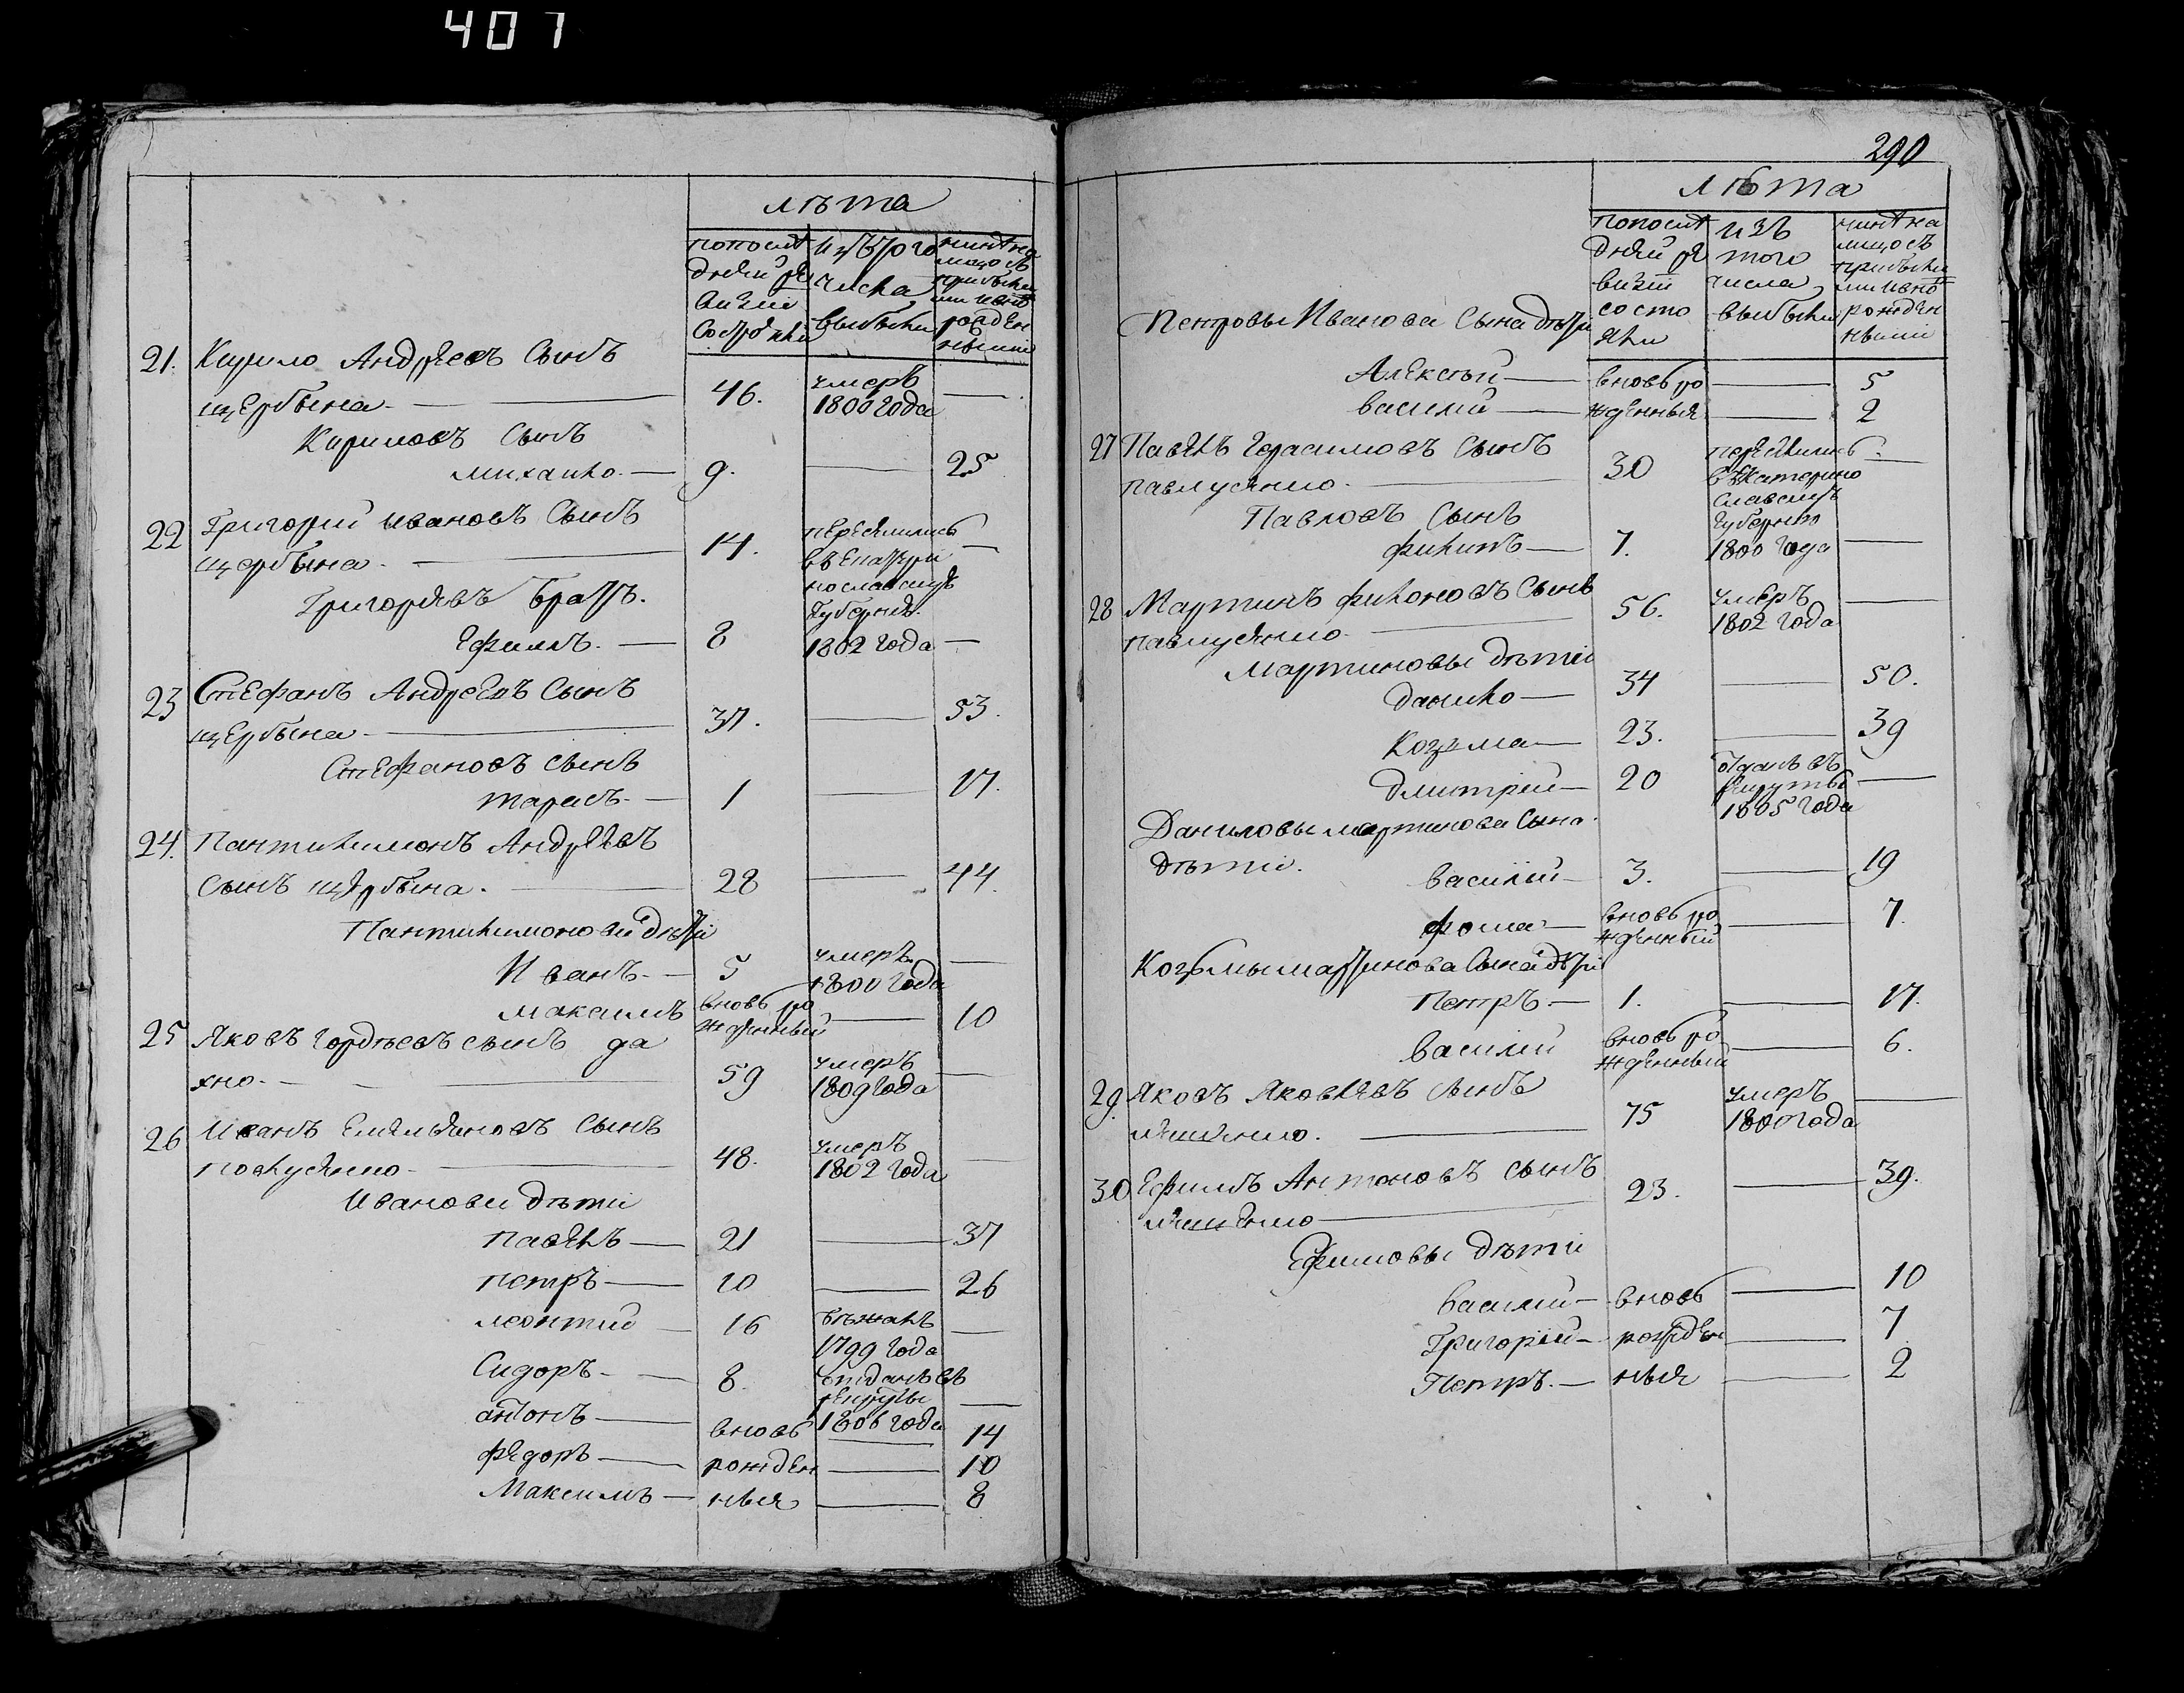 407
лѣта
попослѣ
дней ре
визіи
состояли
изтого
числа
выбыли
нинѣ на
лицо съ
прибыли
ми ивно
рожден
ными
21. Кирило Андреевъ Сынъ
щербына — 46. умеръ 1800 года —
Кириловъ Сынъ
михаило — 9. — 25
22 Григорий ивановъ Сынъ
щербына — 14. переселились —
въ Екатери
нославску
Губерню
Григорьевъ братъ.
Ефимъ — 8 1802 года —
23 Стефанъ Андреевъ Сынъ
щербына — 37. — 53.
Стефановъ сынъ
тарасъ — 1 — 17.
24. Пантилимонъ Андреевъ
сынъ щербына — 28 — 44.
Пантилимонови дѣти
Иванъ — 5 умеръ 1800 года —
максимъ вновь ро
жденный — 10
25 Яковъ Гордѣевъ сынъ да
хно — 59 умеръ 1809 года —
26 Иванъ Емельяновъ Сынъ
48. умеръ 1802 года —
Иванови дѣти
павелъ — 21 — 37
петръ — 10 — 26
леонтий — 16 бѣжалъ 1799 года —
Сидоръ — 8. отданъ въ
рекруты
1806 года —
антонъ — вновь — 14
федоръ — рожден — 10
Максимъ — ныя — 8
290
лѣта
попослѣ
дней ре
визіи
состо
яли
изъ
того
числа
выбыли
нинѣ на
лицо съ
прибыли
ми ивно
рожден
ными
Петровы Иванова Сына дѣти
Алексѣй — вновь ро — 5
василий — жденныя — 2
27 Павелъ Герасимовъ Сынъ
павлусенко — 30 переселились —
въ Екатерино
славскую
Губернию
Павловъ Сынъ
филипъ — 7. 1800 года —
28 Мартинъ филоновъ Сынъ
павлусенко — 56. умеръ 1802 года —
мартиновы дѣти
данило — 34 — 50.
Козма — 23. — 39
дмитрий — 20 отданъ въ
рекруты
1805 года —
Даниловы мартинова Сына
дѣти.
василий — 3. — 19
фома — вновь ро
жденный — 7.
Козмы мартинова Сына дѣти
Петръ — 1. — 17.
василий вновь ро
жденный — 6.
29. Яковъ Яковлевъ Сынъ
75 умеръ 1800 года —
30 Ефимъ Антоновъ сынъ
23. — 39.
Ефимовы дѣти
василий — вновь — 10
Григорий — рожден — 7
Петръ — ныя — 2